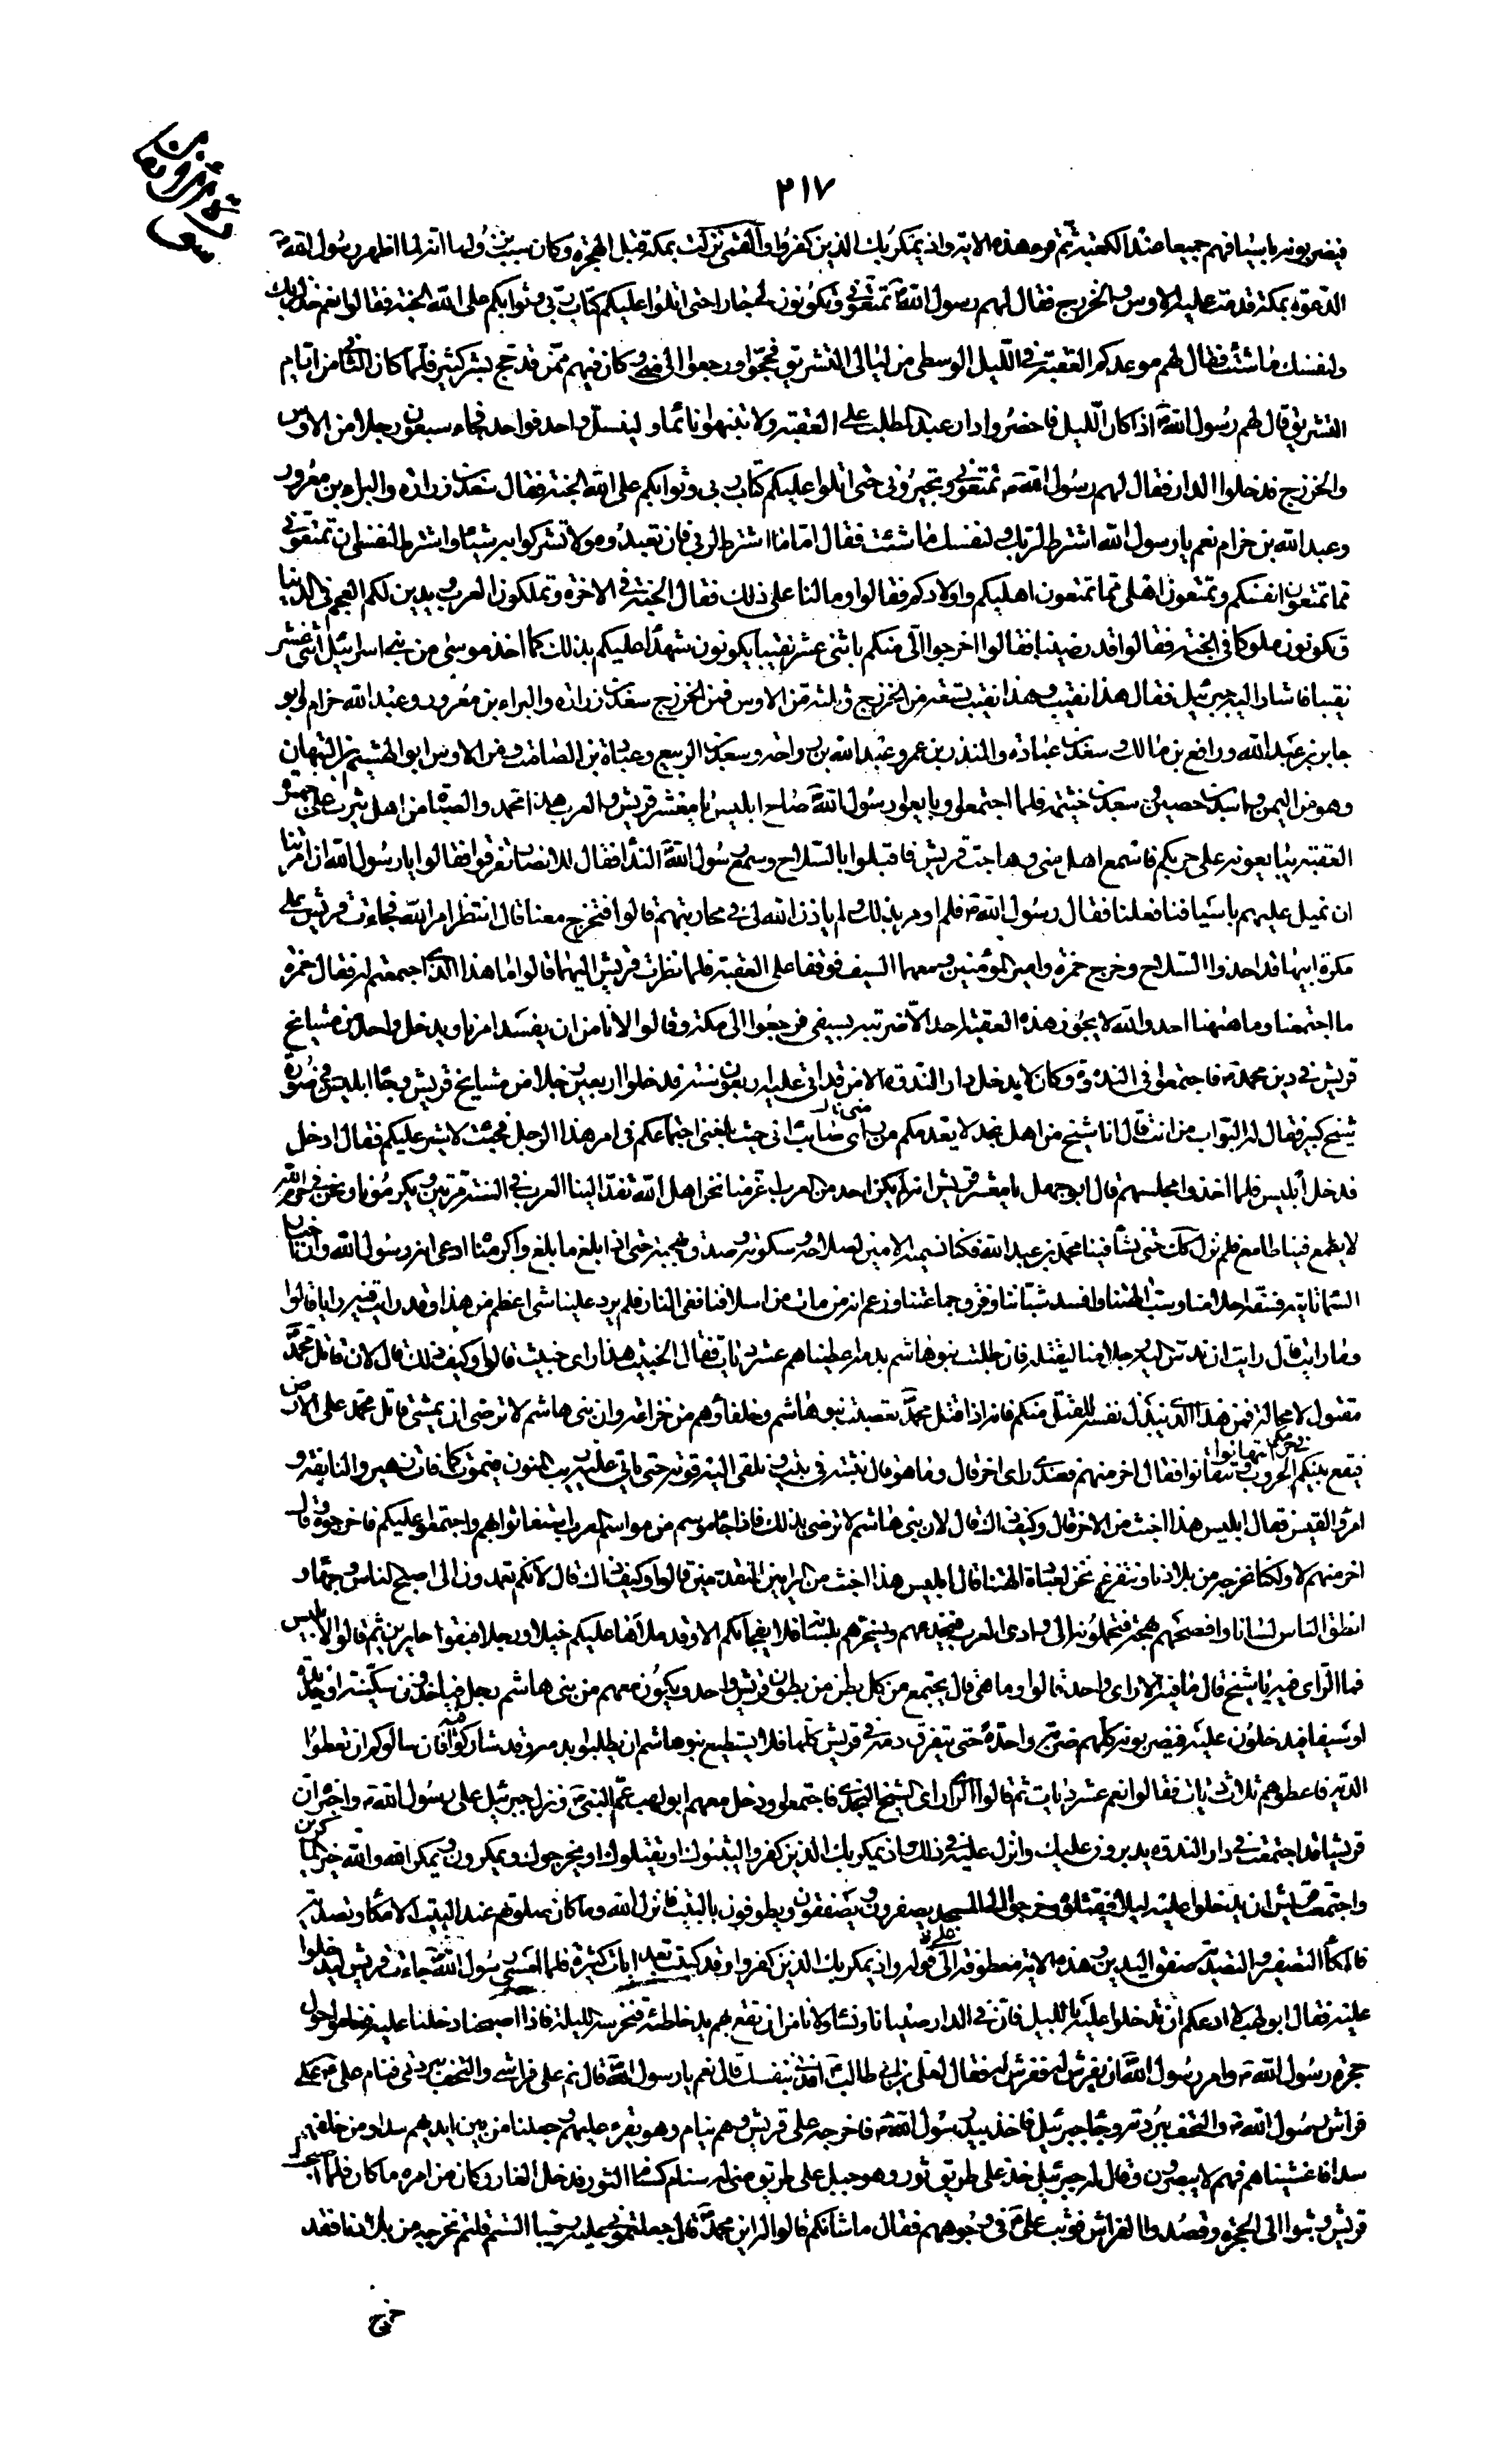 ٢١٧
فيضربونه باسيافهم جميعا عند الكعبة ثم قرء هذه الاية واذ يمكر بك الذين كفروا والقمي نزلت بمكة قبل الهجرة وكان سبب نزولها انه لما اظهر رسول الله
الدعوة بمكة قدمت عليه الاوس والخزرج فقال لهم رسول الله تمنعوني وتكونون لي جارا حتى اتلوا عليكم كتاب ربي وثوابكم على الله الجنة فقالوا نعم خذ لربك
ولنفسك ما شئت فقال لهم موعدكم العقبة في الليل الوسطى من ليالي التشريق فحجوا ورجعوا الى منى وكان فيهم ممن قد حج بشر كثير فلما كان الثاني من ايام
التشريق قال لهم رسول الله اذا كان الليل فاحضروا دار عبد المطلب على العقبة ولا تنبهوا نائما ولينسل واحد فواحد فجاء سبعون رجلا من الاوس
والخزرج فدخلوا الدار فقال لهم رسول الله تمنعوني وتجيروني حتى اتلوا عليكم كتاب ربي وثوابكم على الله الجنة فقال سعد بن زرارة والبراء بن معرور
وعبد الله بن حرام نعم يا رسول الله اشترط لربك ولنفسك ما شئت فقال اما ما اشترط لربي فان تعبدوه ولا تشركوا به شيئا واشترط لنفسي ان تمنعوني
مما تمنعون انفسكم وتمنعون اهلي مما تمنعون اهليكم واولادكم فقالوا وما لنا على ذلك فقال الجنة في الاخرة وتملكون العرب ويدين لكم العجم في الدنيا
وتكونون ملوكا في الجنة فقالوا قد رضينا فقالوا اخرجوا الي منكم اثنى عشر نقيبا يكونون شهداء عليكم بذلك كما اخذ موسى من بني اسرائيل اثنى عشر
نقيبا فاشار اليه جبرئيل فقال هذا نقيب وهذا نقيب تسعة من الخزرج وثلثة من الاوس فمن الخزرج سعد بن زرارة والبراء بن معرور وعبد الله حرام ابو
جابر بن عبد الله ورافع بن مالك وسعد بن عبادة والمنذر بن عمرو وعبد الله بن رواحة وسعد بن الربيع وعبادة بن الصامت ومن الاوس ابو الهيثم بن التيهان
وهو من اليمن واسيد بن حصين وسعد بن خيثمة فلما اجتمعوا وبايعوا رسول الله صاح ابليس يا معشر قريش والعرب هذا محمد والصباة من اهل يثرب على جمرة
العقبة يبايعونه على حربكم فاسمع اهل منى وهاجت قريش فاقبلوا بالسلاح وسمع رسول الله النداء فقال للانصار تفرقوا فقالوا يا رسول الله ان امرتنا
ان نميل عليهم باسيافنا فعلنا فقال رسول الله فلم اومر بذلك ولم ياذن الله لي في محاربتهم قالوا فتخرج معنا قال انتظر امر الله فجاءت قريش على
بكرة ابيها قد اخذوا السلاح وخرج حمزة وامير المؤمنين ومعهما السيف فوقفا على العقبة فلما نظرت قريش اليهما قالوا ما هذا الذي اجتمعتم له فقال حمزة
ما اجتمعنا وما ههنا احد والله لا يجوز هذه العقبة احد الا ضربته بسيفي فرجعوا الى مكة وقالوا لا نامن ان يفسد امرنا ويدخل واحد من مشايخ
قريش في دين محمد فاجتمعوا في الندوة وكان لا يدخل دار الندوة الا من قد اتى عليه اربعون سنة فدخلوا اربعين رجلا من مشايخ قريش وجاء ابليس في صورة
شيخ كبير فقال له البواب من انت قال انا شيخ من اهل نجد لا يعدمكم مني راي صائب اني حيث بلغني اجتماعكم في امر هذا الرجل فجئت لاشير عليكم فقال ادخل
فدخل ابليس فلما اخذوا مجلسهم قال ابو جهل يا معشر قريش انه لم يكن احد من العرب اعز منا نحن اهل الله تفد الينا العرب في السنة مرتين ويكرموننا ونحن في حرم الله
لا يطمع فينا طامع فلم نزل كذلك حتى نشا فينا محمد بن عبد الله فكنا نسميه الامين لصلاحه وسكونه وصدق لهجته حتى اذا بلغ ما بلغ واكرمناه ادعى انه رسول الله وان اخبار
السماء تاتيه فسفه احلامنا وسب الهتنا وافسد شبابنا وفرق جماعتنا وزعم انه من مات من اسلافنا ففي النار فلم يرد علينا شيء اعظم من هذا وقد رايت فيه رايا قالوا
وما رايت قال رايت ان ندس اليه رجلا منا ليقتله فان طلبت بنو هاشم بدمه اعطيناهم عشر ديات فقال الخبيث هذا راي خبيث قالوا وكيف ذلك قال لان قاتل محمد
مقتول لا محالة فمن هذا الذي يبذل نفسه للقتل منكم فانه اذا قتل محمد تعصبت بنو هاشم وحلفاؤهم من خزاعة وان بني هاشم لا ترضى ان يمشي قاتل محمد على الارض
فيقع بينكم الحروب في حرمكم وتتفانوا فقال اخر منهم فعندي راي اخر قال وما هو قال نثبته في بيت ونلقي اليه قوته حتى ياتي عليه ريب المنون فيموت كما مات زهير والنابغة و
امرؤ القيس فقال ابليس هذا اخبث من الاخر قال وكيف ذلك قال لان بني هاشم لا ترضى بذلك فاذا جاء موسم من مواسم العرب استغاثوا بهم واجتمعوا عليكم فاخرجوه وقال
اخر منهم لا ولكنا نخرجه من بلادنا ونتفرغ نحن لعبادة الهتنا قال ابليس هذا اخبث من الرايين المتقدمين قالوا وكيف ذاك قال لانكم تعمدون الى اصبح الناس وجها و
انطق الناس لسانا وافصحهم لهجة فتحملونه الى وادي العرب فيخدعهم ويسحرهم بلسانه فلا يفجاكم الا وقد ملاها عليكم خيلا ورجلا فبقوا حايرين ثم قالوا لابليس
فما الراي فيه يا شيخ قال ما فيه الا راي واحد قالوا وما هو قال يجتمع من كل بطن من بطون قريش واحد ويكون معهم من بني هاشم رجل فياخذون سكينة او حديدة
او سيفا فيدخلون عليه فيضربونه كلهم ضربة واحدة حتى يتفرق دمه في قريش كلها فلا يستطيع بنو هاشم ان يطلبوا بدمه وقد شاركوا فيه فان سالوكم ان تعطوا
الدية فاعطوهم ثلاث ديات فقالوا نعم عشر ديات ثم قالوا الراي راي الشيخ النجدي فاجتمعوا ودخل معهم ابو لهب عم النبي ونزل جبرئيل على رسول الله واخبره ان
قريشا قد اجتمعت في دار الندوة يدبرون عليك وانزل عليه في ذلك واذ يمكر بك الذين كفروا ليثبتوك او يقتلوك او يخرجوك ويمكرون ويمكر الله والله خير الماكرين
واجتمعت قريش ان يدخلوا عليه ليلا فيقتلوه وخرجوا الى المسجد يصفرون ويصفقون ويطوفون بالبيت فانزل الله وما كان صلوتهم عند البيت الا مكاء وتصدية
فالمكاء التصفير والتصدية صفق اليدين وهذه الاية معطوفة على قوله واذ يمكر بك الذين كفروا وقد كتبت بعد ايات كثيرة فلما امسى رسول الله جاءت قريش ليدخلوا
عليه فقال ابو لهب لا ادعكم ان تدخلوا عليه بالليل فان في الدار صبيانا ونساء ولا نامن ان تقع بهم يد خاطئة فنحرسه الليلة فاذا اصبحنا دخلنا عليه فناموا حول
حجرة رسول الله وامر رسول الله ان يفرش له ففرش له فقال لعلي بن ابي طالب افدني بنفسك قال نعم يا رسول الله قال نم على فراشي والتحف ببردتي فنام علي على
فراش رسول الله والتحف ببردته وجاء جبرئيل فاخذ بيد رسول الله فاخرجه على قريش وهم نيام وهو يقرء عليهم وجعلنا من بين ايديهم سدا ومن خلفهم
سدا فاغشيناهم فهم لا يبصرون وقال له جبرئيل خذ على طريق ثور وهو جبل على طريق منى له سنام كسنام الثور فدخل الغار وكان من امره ما كان فلما اصبحت
قريش وثبوا الى الحجرة وقصدوا الفراش فوثب علي في وجوههم فقال ما شانكم قالوا له اين محمد قال جعلتموني عليه رقيبا الستم قلتم نخرجه من بلادنا فقد
خرج